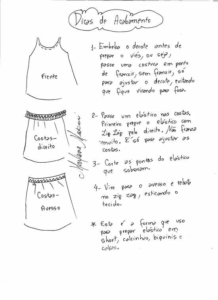 Dicas de Acabamento
Frente
1- Embeba o decote antes de
prepar o viés, ou seja,
passe uma costura em ponto
de franzir, sem franzir, só
para ajustar o decote, evitando
que fique virando para fora.
Costas-
direito
2- Passe um elástico nas costas,
Primeiro prepar o elástico com
Zig Zag pelo direito. Não franza
muito. É só para ajustar as
costas.
3- Corte as pontas do elástico
que sobraram.
Costas-
Avesso
4- Vire para o avesso e rebata
no zig zag, esticando o
tecido.
* Esta é a forma que uso
para prepar elástico em
short, calcinhas, biquinis e
calças.